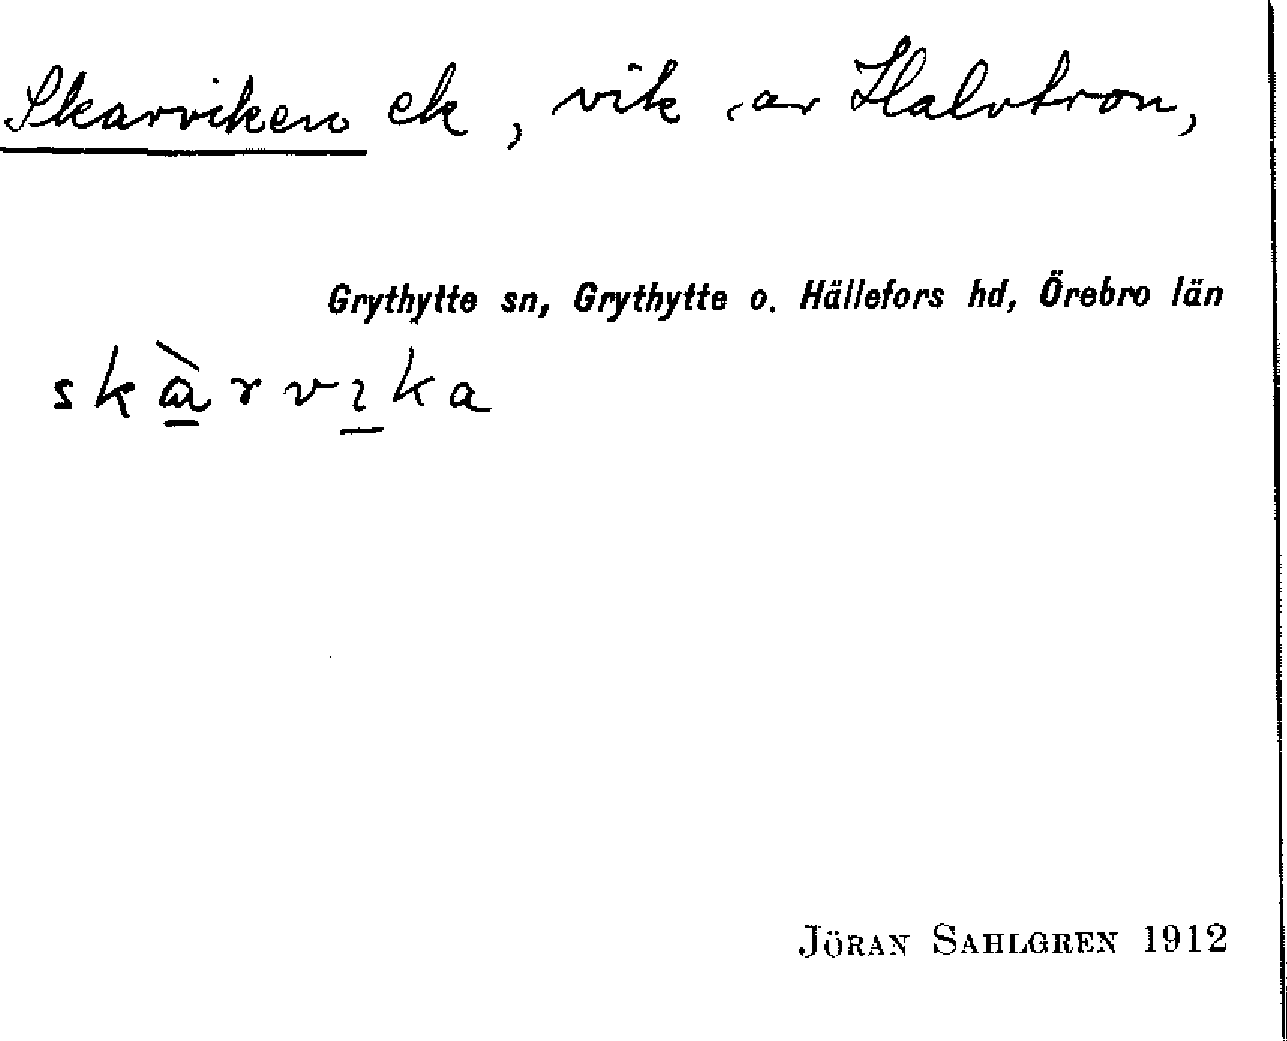 Skarviken ek, vik av Halvtron,
Grythytte sn, Grythytte o. Hällefors hd, Örebro län
skàrvıka
JÖRAN SAHLGREN 1912